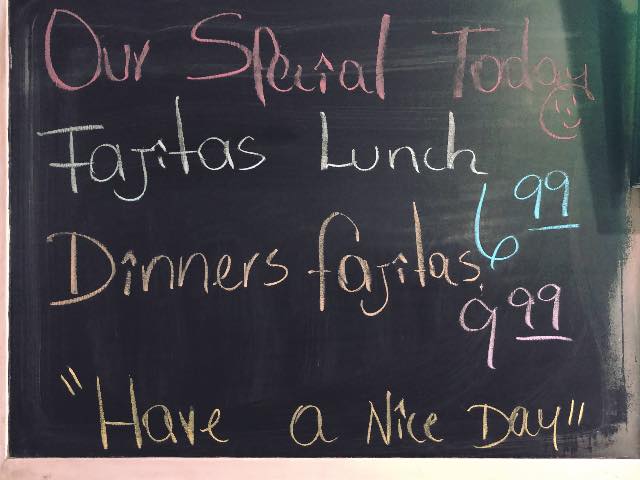 Our Special Today
Fajitas Lunch
6 99
Dinners fajitas
9 99
"Have a Nice Day"